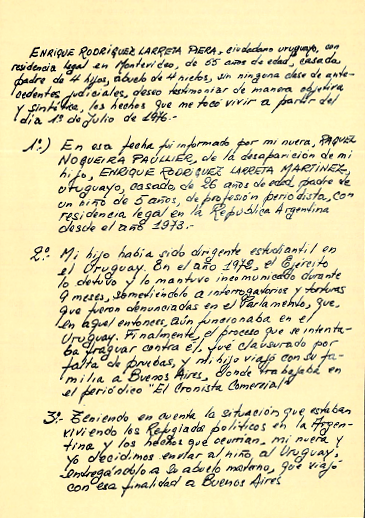 ENRIQUE RODRIGUEZ LARRETA PIERA, ciudadano uruguayo, con
residencia legal en Montevideo, de 55 años de edad, casado,
padre de 4 hijos, abuelo de 4 nietos, sin ninguna clase de ante-
cedentes judiciales, deseo testimoniar de manera objetiva
y sintética, los hechos que me tocó vivir a partir del
día 1º de Julio de 1976.-
1º) En esa fecha fuí informado por mi nuera, RAQUEL
NOGUEIRA PAULLIER, de la desaparición de mi
hijo, ENRIQUE RODRIGUEZ LARRETA MARTINEZ,
uruguayo, casado, de 26 años de edad, padre de
un niño de 5 años, de profesión periodista, con
residencia legal en la República Argentina
desde el año 1973.-
2º- Mi hijo había sido dirigente estudiantil en
el Uruguay. En el año 1972, el Ejército
lo detuvo y lo mantuvo incomunicado durante
9 meses, sometiéndolo a interrogatorios y torturas
que fueron denunciadas en el Parlamento, que,
en aquel entonces, aún funcionaba en el
Uruguay. Finalmente, el proceso que se intenta-
ba fraguar contra él, fué clausurado por
falta de pruebas, y mi hijo viajó con su fa-
milia a Buenos Aires, donde trabajaba en
el periódico "El Cronista Comercial"
3º- Teniendo en cuenta la situación que estaban
viviendo los Refugiados políticos en la Argen-
tina y los hechos que ocurrían, mi nuera y
yo decidimos enviar al niño, al Uruguay,
entregándolo a su abuelo materno, que viajó
con esa finalidad a Buenos Aires